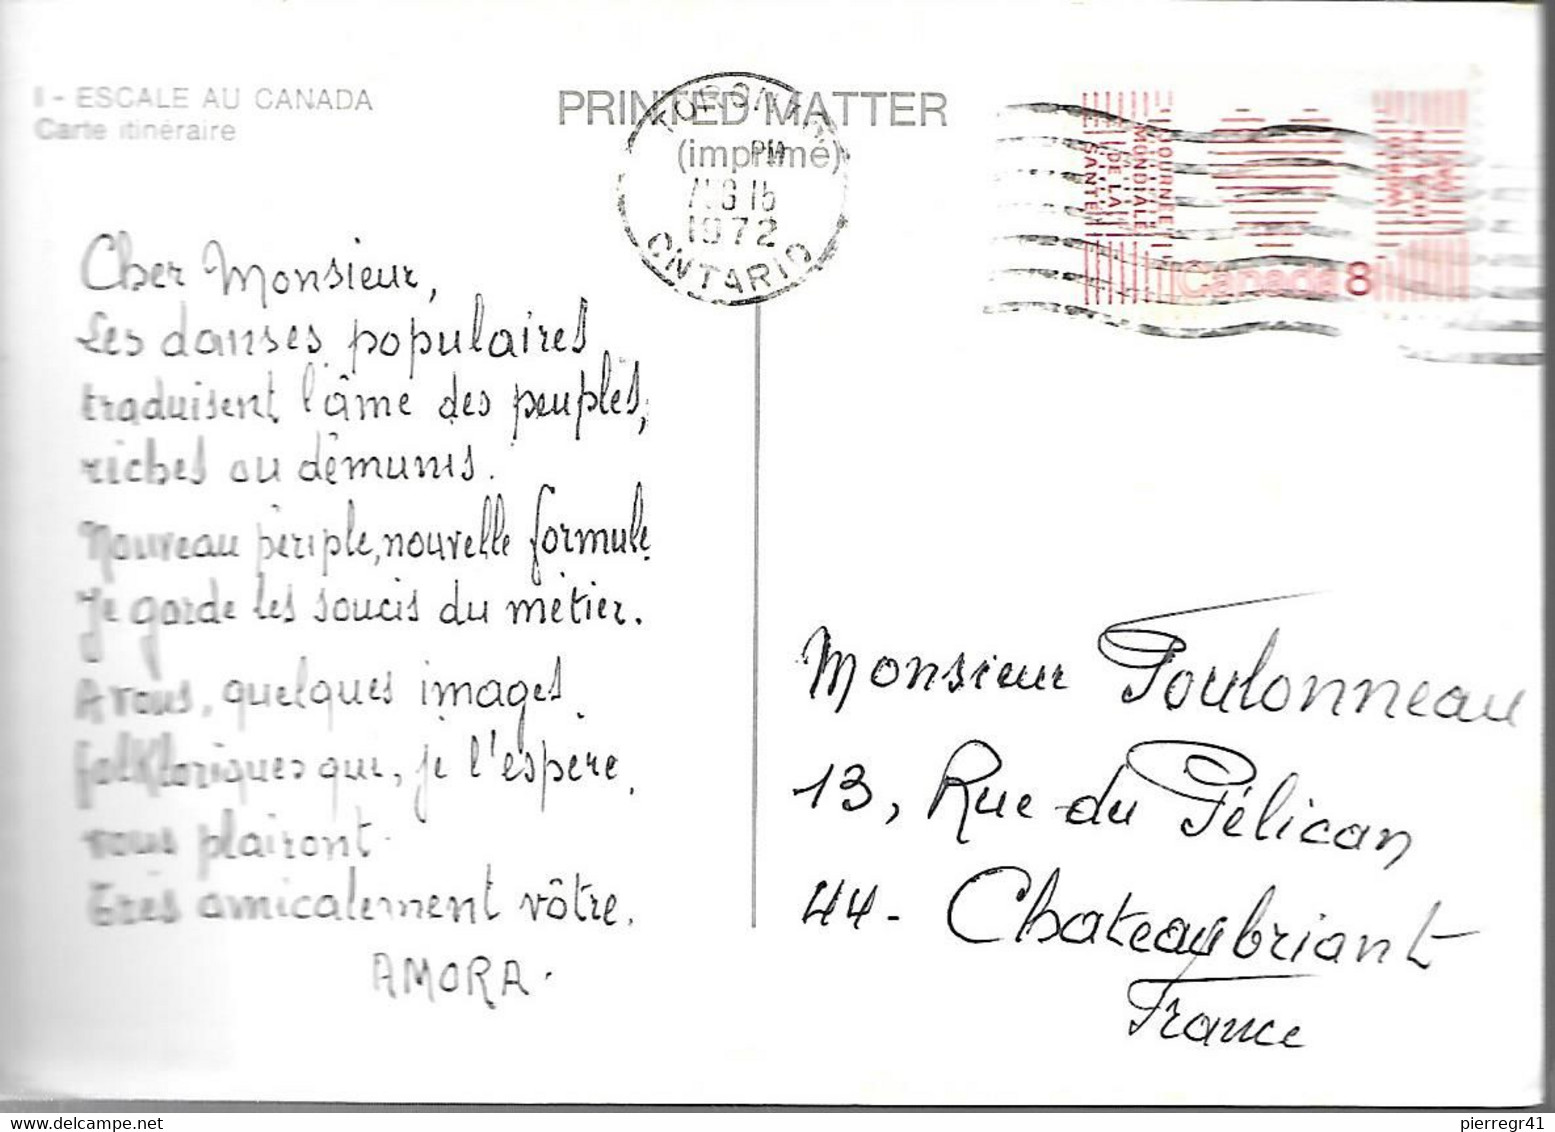 I - ESCALE AU CANADA
Carte itinéraire
PRINTED MATTER
(imprimé)
TORONTO
PM
AUG 15
1972
ONTARIO
JOURNÉE
MONDIALE
DE LA
SANTÉ
Canada 8
Cher Monsieur,
Les danses populaires
traduisent l'âme des peuples,
riches ou démunis.
Nouveau périple, nouvelle formule.
Je garde les soucis du métier.
A vous, quelques images
folkloriques que, je l'espère,
vous plairont.
Très amicalement vôtre.
AMORA.
Monsieur Toulonneau
13, Rue du Pélican
44 - Chateaubriant
France
pierregr41